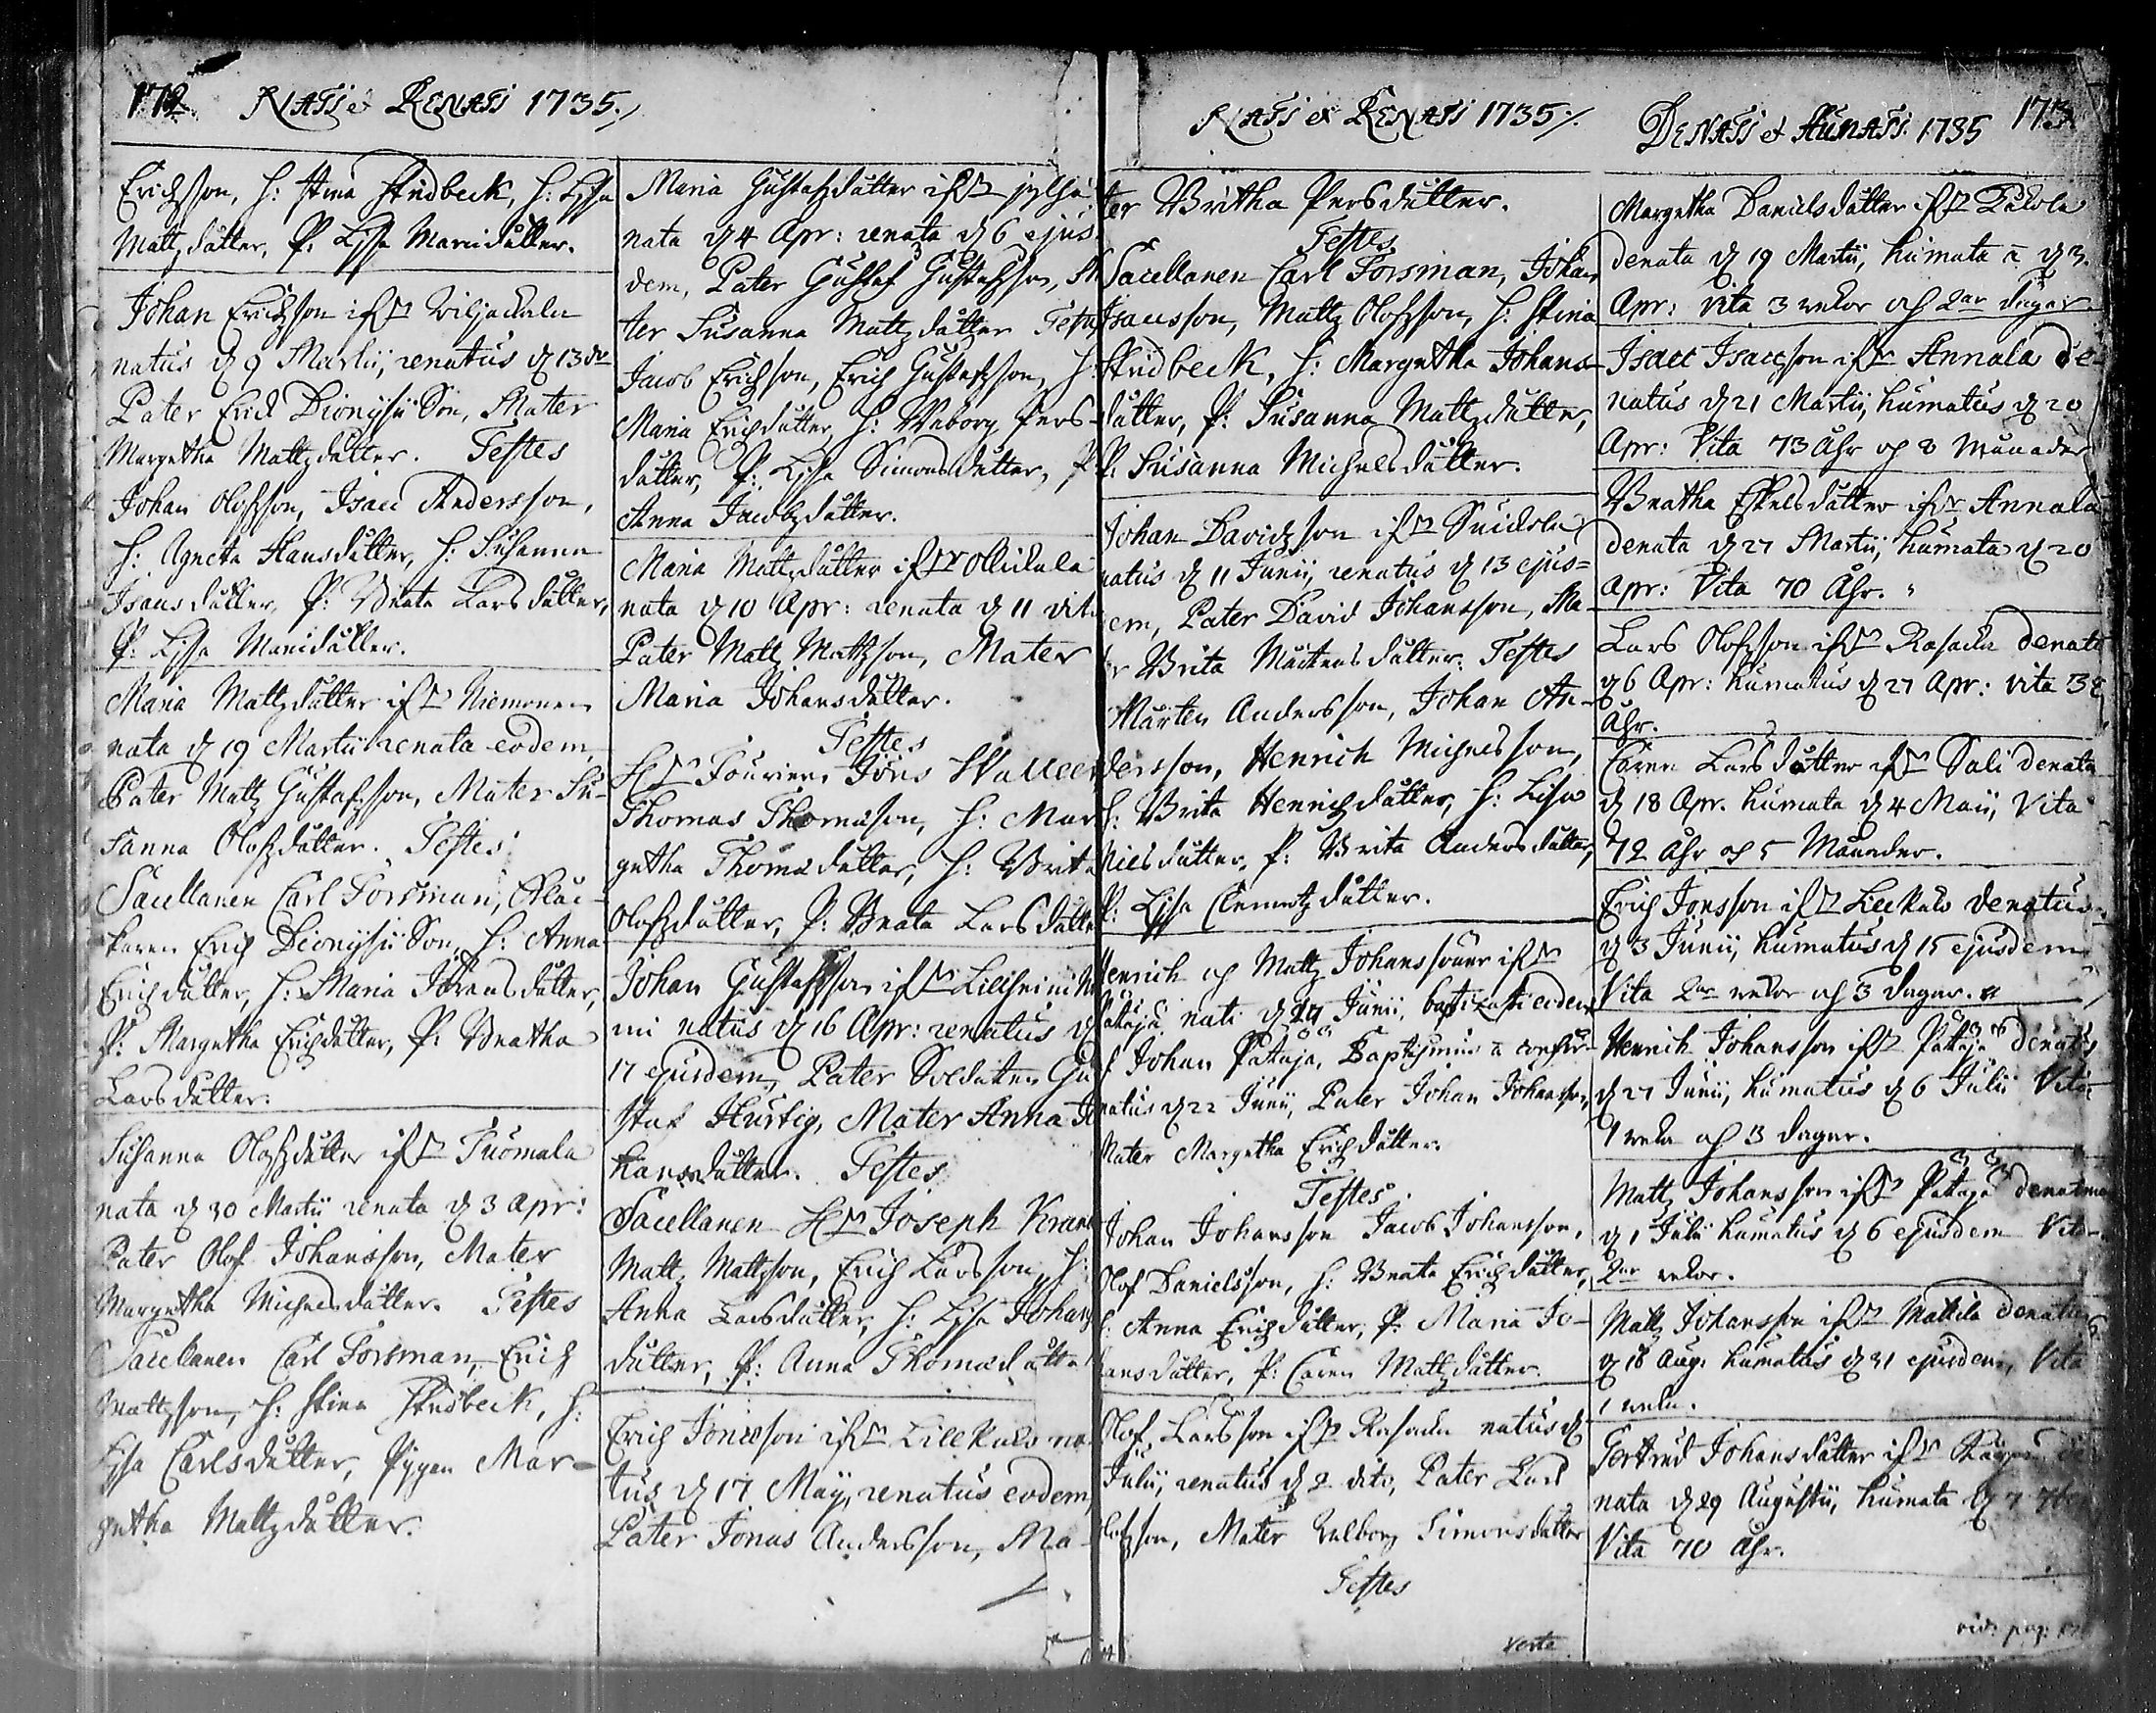 172. NATi et RENATi 1735./
Erichsson, H: Stina Studbeck, H: Lisa
Mattzdotter, P: Lisa Mariædotter.
Johan Erichsson ifrån Viljackala
natus d 9 Martii, renatus d 13 do
Pater Erich Dionysii Son, Mater
Margetha Mattzdotter. Testes
Johan Olofsson, Isacc Andersson,
H: Agneta Hansdotter, H: Susanna
Isansdotter, P: Beata Larsdotter,
P: Lisa Mariædotter.
Maria Mattzdotter ifrån Niemonen
nata d 19 Martii renata eodem,
Pater Mattz Gustafsson, Mater Su-
sanna Olofsdotter. Testes
Sacellanen Carl Forsman, Kloc-
karen Erich Dionysii Son, H: Anna
Erichsdotter, H: Maria Jöransdotter,
P: Margetha Erichsdotter, P: Beatha
Larsdotter.
Susanna Olofsdotter ifrån Tuomala
nata d 30 Martii renata d 3 Apr:
Pater Olof Johansson, Mater
Margetha Michelsdotter. Testes
Sacellanen Carl Forsman, Erich
Mattzson, H: Stina Studbeck, H:
Lisa Carlsdotter, Pigan Mar-
getha Mattzdotter.
Maria Gustafsdotter ifrån
nata d 4 Apr: renata d 6 ejus-
dem, Pater Gustaf Gustafsson, Ma
ter Susanna Mattzdotter Testes
Jacob Erichson, Erich Gustafsson, H:
Maria Erichsdotter, H: Waborg Pers-
dotter, P: Lisa Simonsdotter, P:
Anna Jacobsdotter.
Maria Mattzdotter ifrån Ollickala
nata d 10 Apr: renata d 11 dito
Pater Mattz Mattzson, Mater
Maria Johansdotter.
Testes
Hr Fouriern Jöns Walleen
Thomas Thomasson, H: Mar
getha Thomædotter, H: Brita
Olofsdotter, P: Beata Larsdotter
Johan Gustafsson ifrån Lilleheini
mi natus d 16 Apr: renatus d
17 ejusdem, Pater Soldaten Gu
staf Hurtig, Mater Anna Jo
hansdotter. Testes
Sacellanen Hr Joseph Kranck
Mattz Mattzson, Erich Larsson, H:
Anna Larsdotter, H: Lisa Johans
dotter, P: Anna Thomædotter
Erich Jonasson ifrån Lillkulo na-
tus d 17 Maij, renatus eodem,
Pater Jonas Andersson, Ma-
NATi et RENATi 1735/.
ter Britha Persdotter.
Testes
Sacellanen Carl Forsman, Johan
Isansson, Mattz Olofsson, H: Stina
Studbeck, H: Margetha Johans-
dotter, P: Susanna Mattzdotter,
P: Susanna Michelsdotter.
Johan Davidsson ifrån Suickola
natus d 11 Junii, renatus d 13 ejus=
dem, Pater David Johansson, Ma-
ter Brita Mårtensdotter. Testes
Mårten Andersson, Johan An-
dersson, Henrich Michelsson,
H: Brita Henrichsdotter, H: Lisa
Nielsdotter, P: Brita Andersdotter,
P: Lisa Clemetzdotter.
Henrich och Mattz Johanssöner ifrån
Pattaja nati d 17 Junii, baptizati eodem
af Johan Pattaja, Baptismus a confir-
matus d 22 Junii, Pater Johan Johansson,
Mater Margetha Erichsdotter.
Testes
Johan Johansson Jacob Johansson,
Olof Danielsson, H: Beata Erichsdotter,
H: Anna Erichsdotter, P: Maria Jo-
hansdotter, P: Caren Mattzdotter.
Olof Larsson ifrån Rasacka natus d
Julii, renatus d 2 dito, Pater Lars
Olofsson, Mater Valborg Simonsdotter
Testes
verte
DENATi et HUMATi 1735 173
Margetha Danielsdotter ifrån Pakola
denata d 19 Martii, humata d 3
Apr: vita 3 wekor och 2ar dagar.
Isacc Isacsson ifrån Annala de-
natus d 21 Martii, humatus d 20
Apr: Vita 73 Åhr och 8 Månader
Beatha Eskelsdotter ifrån Annala
denata d 27 Martii, humata d 20
Apr: Vita 70 Åhr.
Lars Olofsson ifrån Rasacka denatus
d 6 Apr: humatus d 27 Apr: vita 38
Åhr.
Caren Larsdotter ifrån Sali denata
d 18 Apr. humata d 4 Maii, Vita
72 Åhr och 5 Månader.
Erich Jonsson ifrån Lillkulo denatus
d 3 Junii, humatus d 15 ejusdem
Vita 2ar wekor och 3 dagar.
Henrich Johansson ifrån Pattaja denatus
d 27 Junii, humatus d 6 Julii Vita
1 weka och 3 dagar.
Mattz Johansson ifrån Pattaja denatus
d 1 Julii humatus d 6 ejusdem Vita
2ar wekor.
Mattz Johansson ifrån Mattila denatus
d 18 Aug: humatus d 31 ejusdem, Vita
1 weka.
Gertrud Johansdotter ifrån de
nata d 29 Augustii, humata d 7 7br
Vita 70 Åhr.
vid: pag: